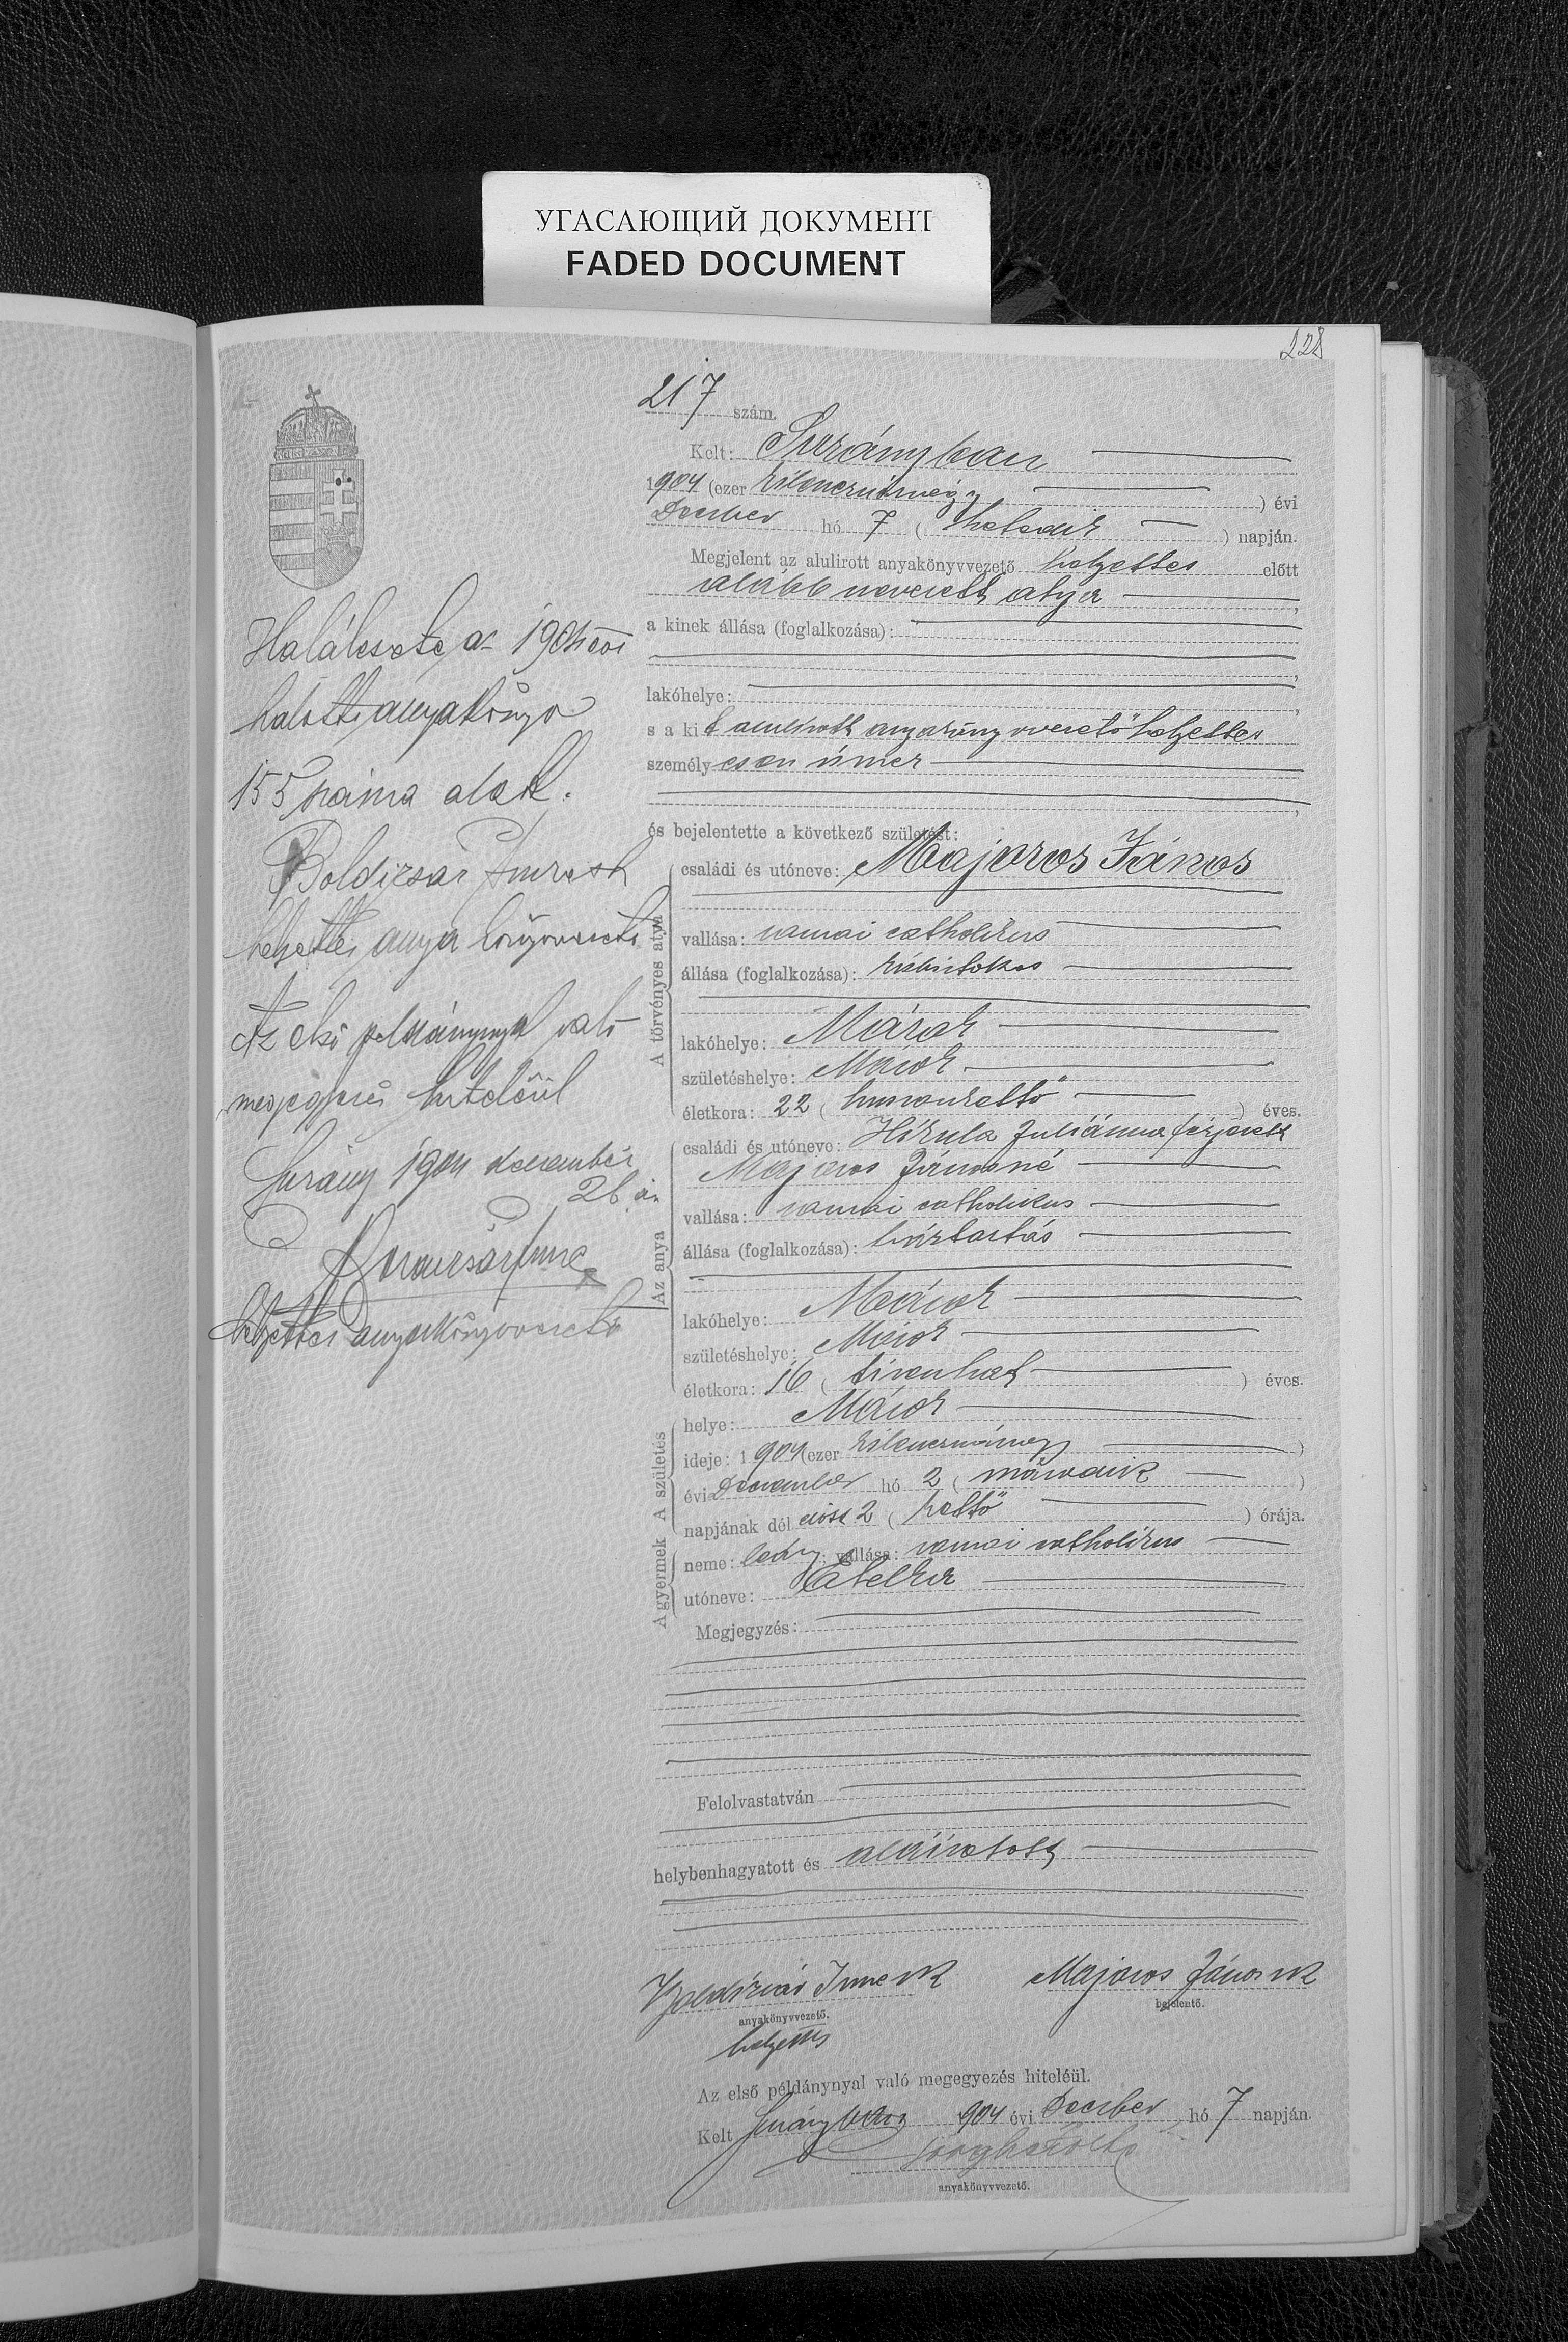 УГАСАЮЩИЙ ДОКУМЕНТ
FADED DOCUMENT
228
217 szám.
Kelt: Surányban
1904 (ezer kilencszáznégy) évi
December hó 7 (hetedik) napján.
Megjelent az alulirott anyakönyvvezető helyettes előtt
alább nevezett atya,
a kinek állása (foglalkozása):
lakóhelye:
s a kit alulirott anyakönyvvezető helyettes
személyesen ismer
és bejelentette a következő születést:
A törvényes atya
családi és utóneve: Majoros János
vallása: romai catholikus
állása (foglalkozása): kisbirtokos
lakóhelye: Márok
születéshelye: Márok
életkora: 22 (huszonkettő) éves.
Az anya
családi és utóneve: Juliánna férjezett
Majoros Jánosné
vallása: romai catholikus
állása (foglalkozása): háztartás
lakóhelye: Márok
születéshelye: Márok
életkora: 16 (tizenhat) éves.
A gyermek A születés
helye: Márok
ideje: 1904 (ezer kilencszáznégy)
évi December hó 2 (második)
napjának dél előtt 2 (kettő) órája.
neme: leány; vallása: romai catholikus
utóneve: Etelka
Megjegyzés:
Felolvastatván
helybenhagyatott és aláiratott
Boldizsár Imre sk Majoros János sk
anyakönyvvezető. bejelentő.
helyettes
Az első példánynyal való megegyezés hiteléül.
Kelt Surányban 904 évi December hó 7 napján.
anyakönyvvezető.
Halálesete az 1904 évi
halotti anyakönyv
155 száma alatt.
Boldizsár Imre sk
helyettes anyakönyvvezető
Az első példánynyal való
megegyezés hiteléül
Surány 1904 december
26 án
Boldizsár Imre
helyettes anyakönyvvezető